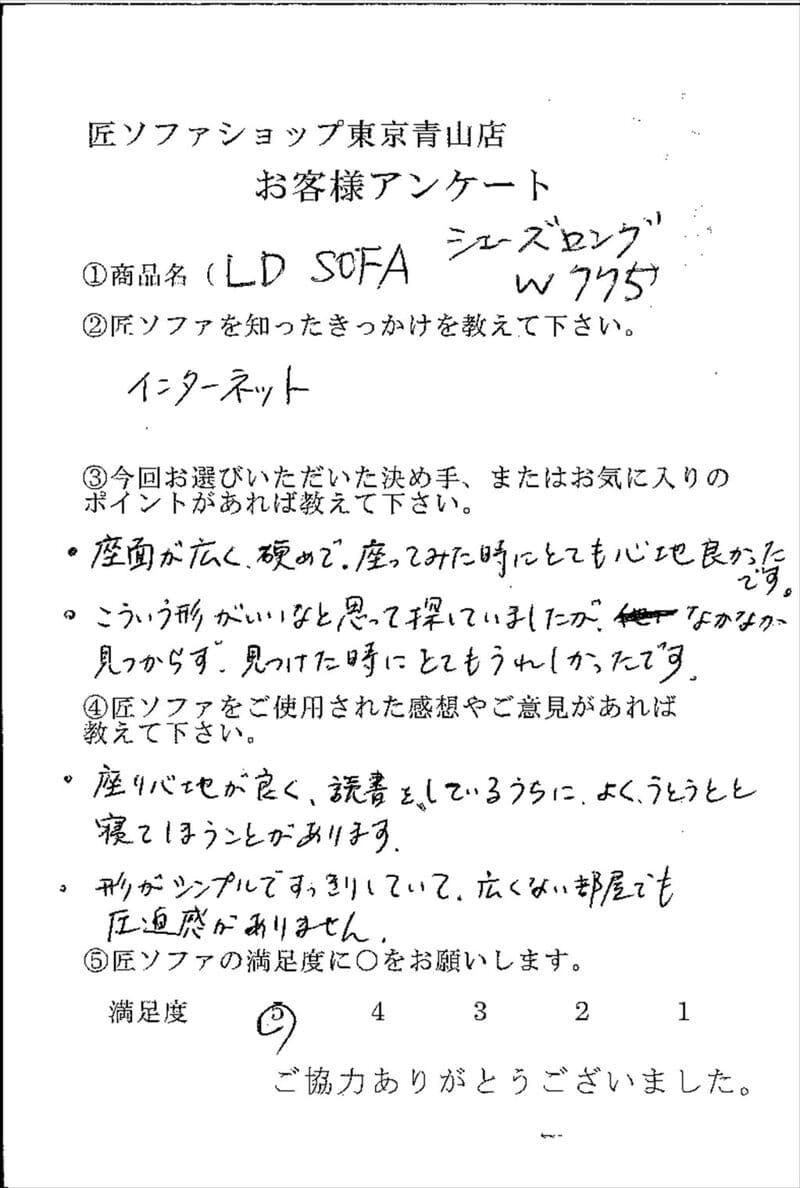 匠ソファショップ東京青山店
お客様アンケート
①商品名（LD SOFA シェーズロング
W775）
②匠ソファを知ったきっかけを教えて下さい。
インターネット
③今回お選びいただいた決め手、またはお気に入りの
ポイントがあれば教えて下さい。
• 座面が広く、硬めで、座ってみた時にとても心地良かった
です。
• こういう形がいいなと思って探していましたが、なかなか
見つからず、見つけた時にとてもうれしかったです。
④匠ソファをご使用された感想やご意見があれば
教えて下さい。
• 座り心地が良く、読書をしているうちに、よく、うとうとと
寝てしまうことがあります。
• 形がシンプルですっきりしていて、広くない部屋でも
圧迫感がありません。
⑤匠ソファの満足度に○をお願いします。
満足度 5 4 3 2 1
ご協力ありがとうございました。